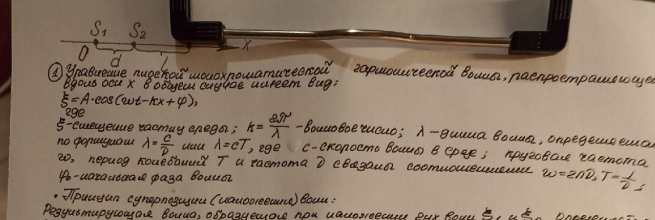 S₁ S₂
O d L X
① Уравнение плоской монохроматической гармонической волны, распространяющейс
вдоль оси x в общем случае имеет вид:
ξ = A·cos(ωt - kx + φ),
где
ξ - смещение частиц среды; k = 2π/λ - волновое число; λ - длина волны, определяемая
по формулам λ = c/ν или λ = cT, где c - скорость волны в среде; круговая частота
ω, период колебаний T и частота ν связаны соотношениями ω = 2πν, T = 1/ν,
φ₀ - начальная фаза волны
• Принцип суперпозиции (наложения) волн:
Результирующая волна, образующая при наложении двух волн ξ₁ и ξ₂